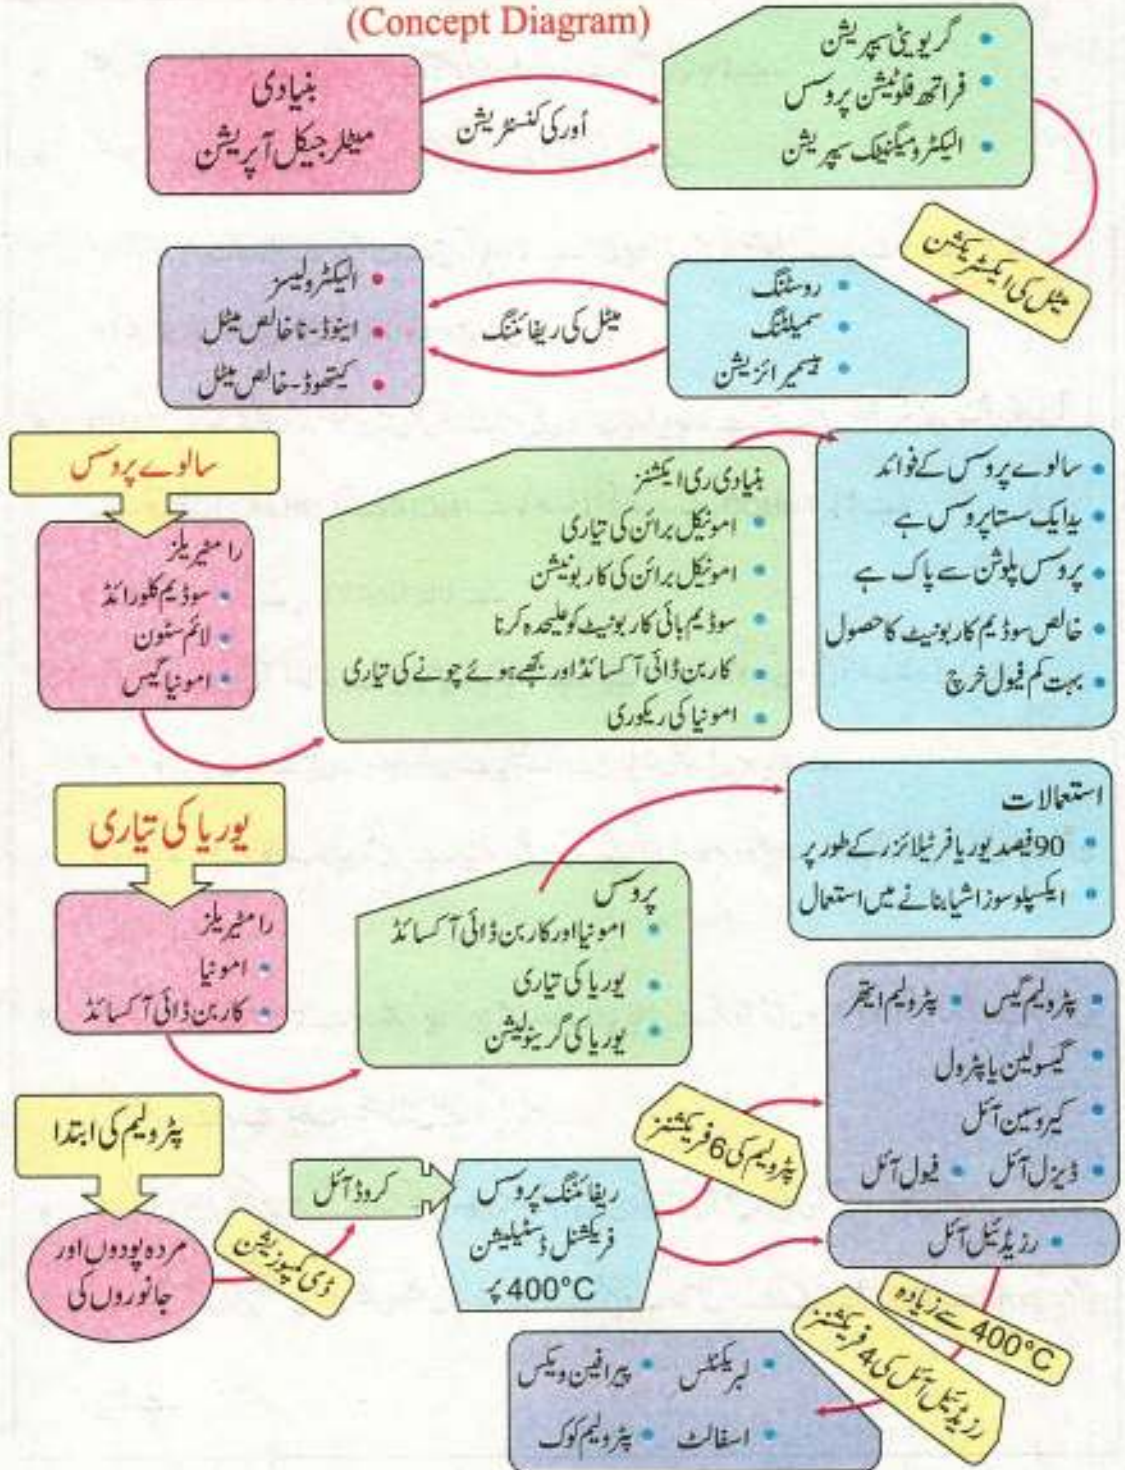 (Concept Diagram)
بنیادی
میٹلرجیکل آپریشن
اُور کی کنسنٹریشن
گریویٹی سیپریشن
فراتھ فلوٹیشن پروسس
الیکٹرومیگنیٹک سیپریشن
میٹل کی ایکسٹریکشن
روسٹنگ
سمیلٹنگ
بیسیمیرائزیشن
میٹل کی ریفائننگ
الیکٹرولیسز
اینوڈ-ناخالص میٹل
کیتھوڈ-خالص میٹل
سالوے پروسس
را مٹیریلز
سوڈیم کلورائڈ
لائم سٹون
امونیا گیس
بنیادی ری ایکشنز
امونیکل برائن کی تیاری
امونیکل برائن کی کاربونیشن
سوڈیم بائی کاربونیٹ کو علیحدہ کرنا
کاربن ڈائی آکسائڈ اور بجھے ہوئے چونے کی تیاری
امونیا کی ریکوری
سالوے پروسس کے فوائد
یہ ایک سستا پروسس ہے
پروسس پلوشن سے پاک ہے
خالص سوڈیم کاربونیٹ کا حصول
بہت کم فیول خرچ
یوریا کی تیاری
را مٹیریلز
امونیا
کاربن ڈائی آکسائڈ
پروسس
امونیا اور کاربن ڈائی آکسائڈ
یوریا کی تیاری
یوریا کی گرینولیشن
استعمالات
90 فیصد یوریا فرٹیلائزر کے طور پر
ایکسپلوسوز اشیا بنانے میں استعمال
پٹرولیم کی ابتدا
مردہ پودوں اور
جانوروں کی
ڈی کمپوزیشن
کروڈ آئل
ریفائننگ پروسس
فریکشنل ڈسٹیلیشن
400°C پر
پٹرولیم کی 6 فریکشنز
پٹرولیم گیس پٹرولیم ایتھر
گیسولین یا پٹرول
کیروسین آئل
ڈیزل آئل فیول آئل
رزیڈئیل آئل
400°C سے زیادہ
رزیڈئیل آئل کی 4 فریکشنز
لبریکنٹس پیرافین ویکس
اسفالٹ پٹرولیم کوک